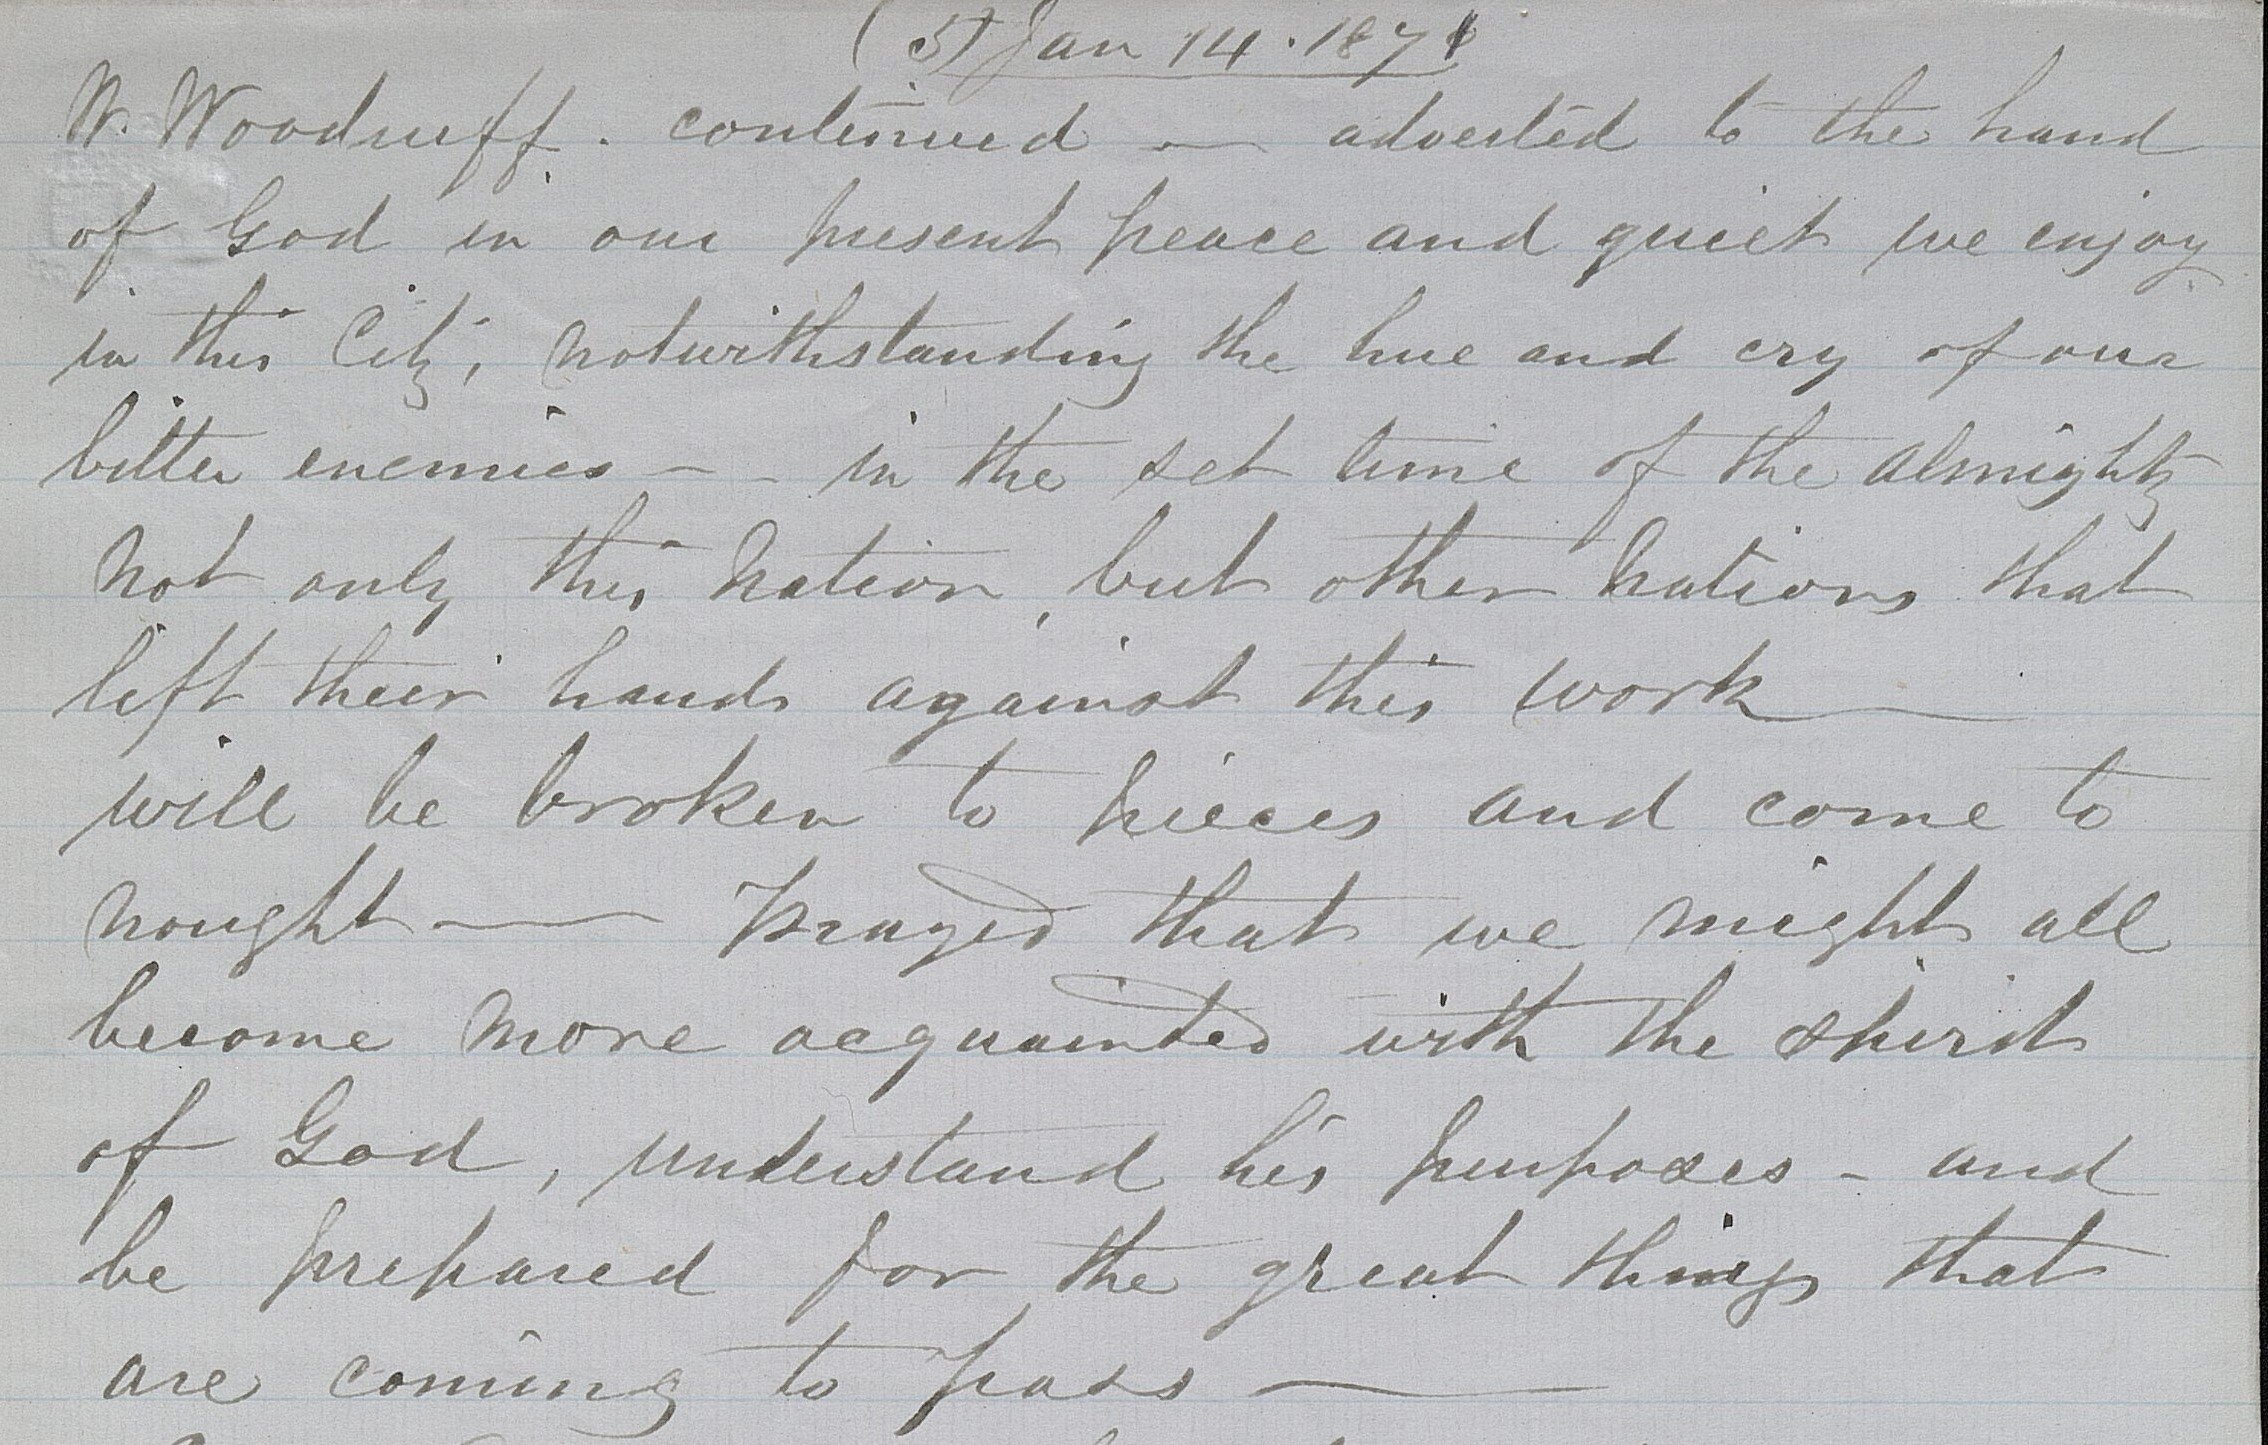 (5) Jan 14. 1871
W. Woodruff. continued — adverted to the hand
of God in our present peace and quiet we enjoy
in this City, notwithstanding the hue and cry of our
bitter enemies — - in the set time of the almighty
not only this Nation, but other Nations that
lift their hands against this work —
will be broken to pieces and come to
nought — Prayed that we might all
become more acquainted with the spirit
of God, understand his purposes - and
be prepared for the great things that
are coming to pass —